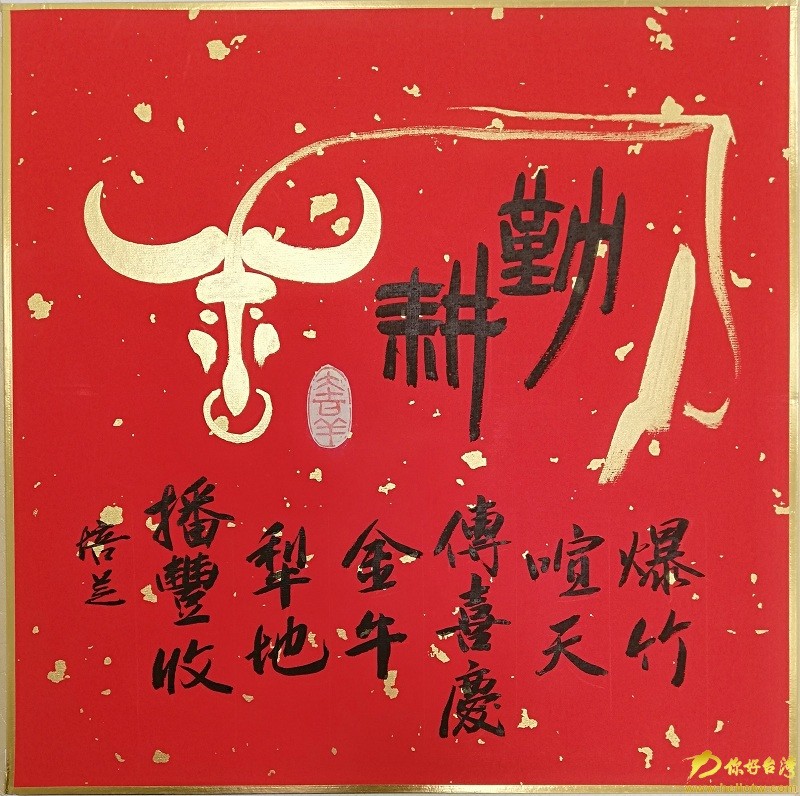 勤
耕
爆竹
喧天
傳喜慶
金牛
犁地
播豐收
培芝
大吉羊
你好台湾